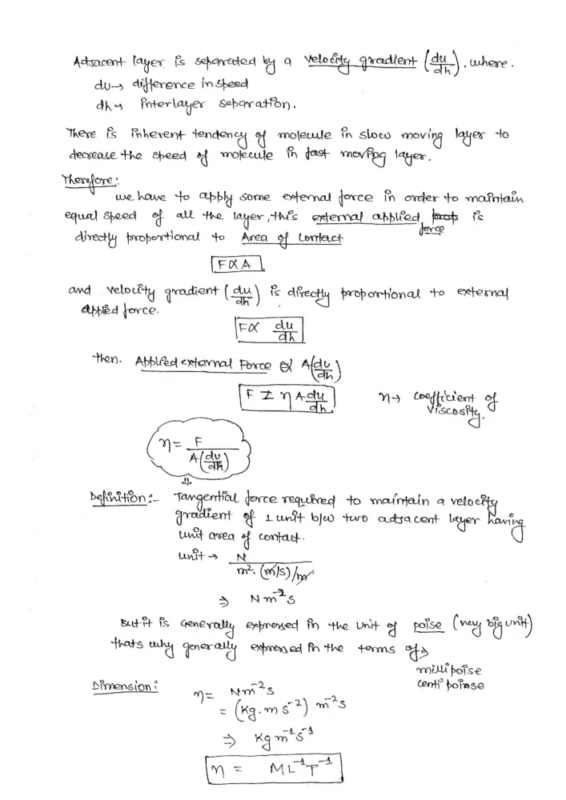 Adjacent layer is separated by a velocity gradient (du/dh), where.
du → difference in speed
dh → interlayer separation.
There is inherent tendency of molecule in slow moving layer to
decrease the speed of molecule in fast moving layer.
Therefore:
we have to apply some external force in order to maintain
equal speed of all the layer, this external applied force is
directly proportional to Area of contact
F ∝ A
and velocity gradient (du/dh) is directly proportional to external
applied force.
F ∝ du/dh
then. Applied external Force ∝ A(du/dh)
F = η A du/dh
η → coefficient of
viscosity.
η = F / A(du/dh)
⇓
Definition:- Tangential force required to maintain a velocity
gradient of 1 unit b/w two adjacent layer having
unit area of contact.
unit → N / m². (m/s)/m
⇒ N m⁻² s
But it is Generally expressed in the unit of poise (very big unit)
thats why generally expressed in the terms of →
millipoise
centi poinse
Dimension:
η = N m⁻² s
= (Kg. m s⁻²) m⁻² s
⇒ Kg m⁻¹ s⁻¹
η = M L⁻¹ T⁻¹